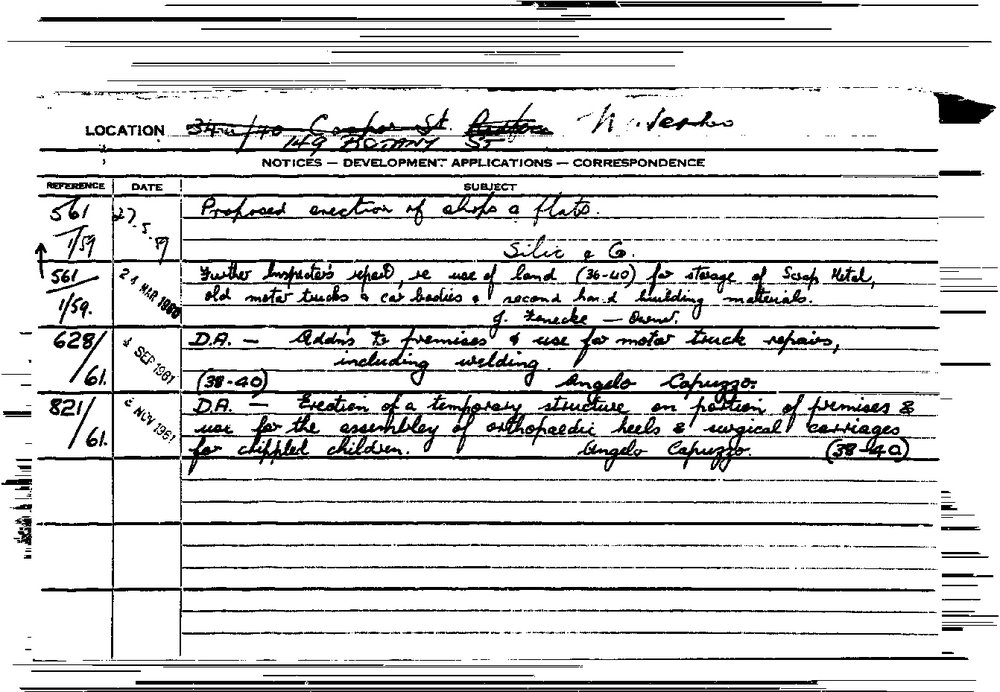 LOCATION 34 /40 Cooper St.
149 BOTANY ST
NOTICES — DEVELOPMENT APPLICATIONS — CORRESPONDENCE
REFERENCE DATE SUBJECT
561 1/59 27.5.59 Proposed erection of shops & flats.
Silic & G.
561 1/59. 24 MAR 1960 Further Inspector's report, re use of land (36-40) for storage of Scrap Metal,
old motor trucks & car bodies & second hand building materials.
J. — Owner.
628/61. SEP 1961 D.A. — Addn's to premises & use for motor truck repairs,
including welding.
(38-40) Angelo Capuzzo.
821/61. NOV 1961 D.A. — Erection of a temporary structure on portion of premises &
use for the assembley of orthopaedic heels & surgical carriages
for chippled children. Angelo Capuzzo. (38-40)